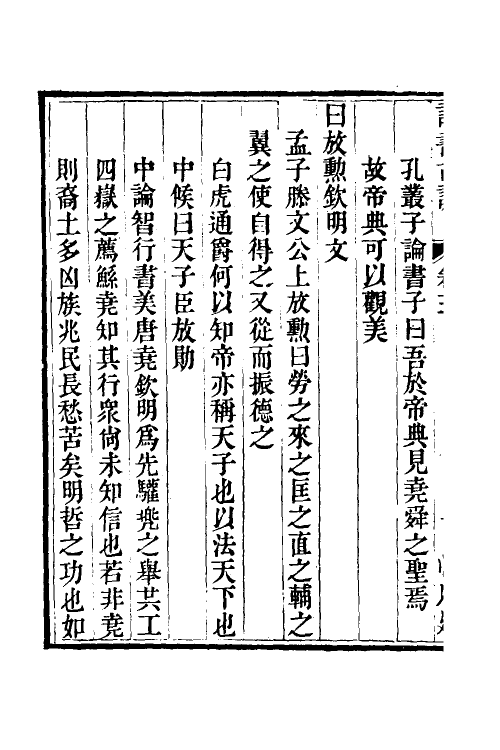 孔叢子論書子曰吾於帝典見堯舜之聖焉
故帝典可以觀美
曰放勳欽明文
孟子滕文公上放勳曰勞之來之匡之直之輔之
翼之使自得之又從而振德之
白虎通爵何以知帝亦稱天子也以法天下也
中候曰天子臣放勛
中論智行書美唐堯欽明爲先驩兠之舉共工
四嶽之薦鯀堯知其行衆尙未知信也若非堯
則裔土多凶族兆民長愁苦矣明哲之功也如